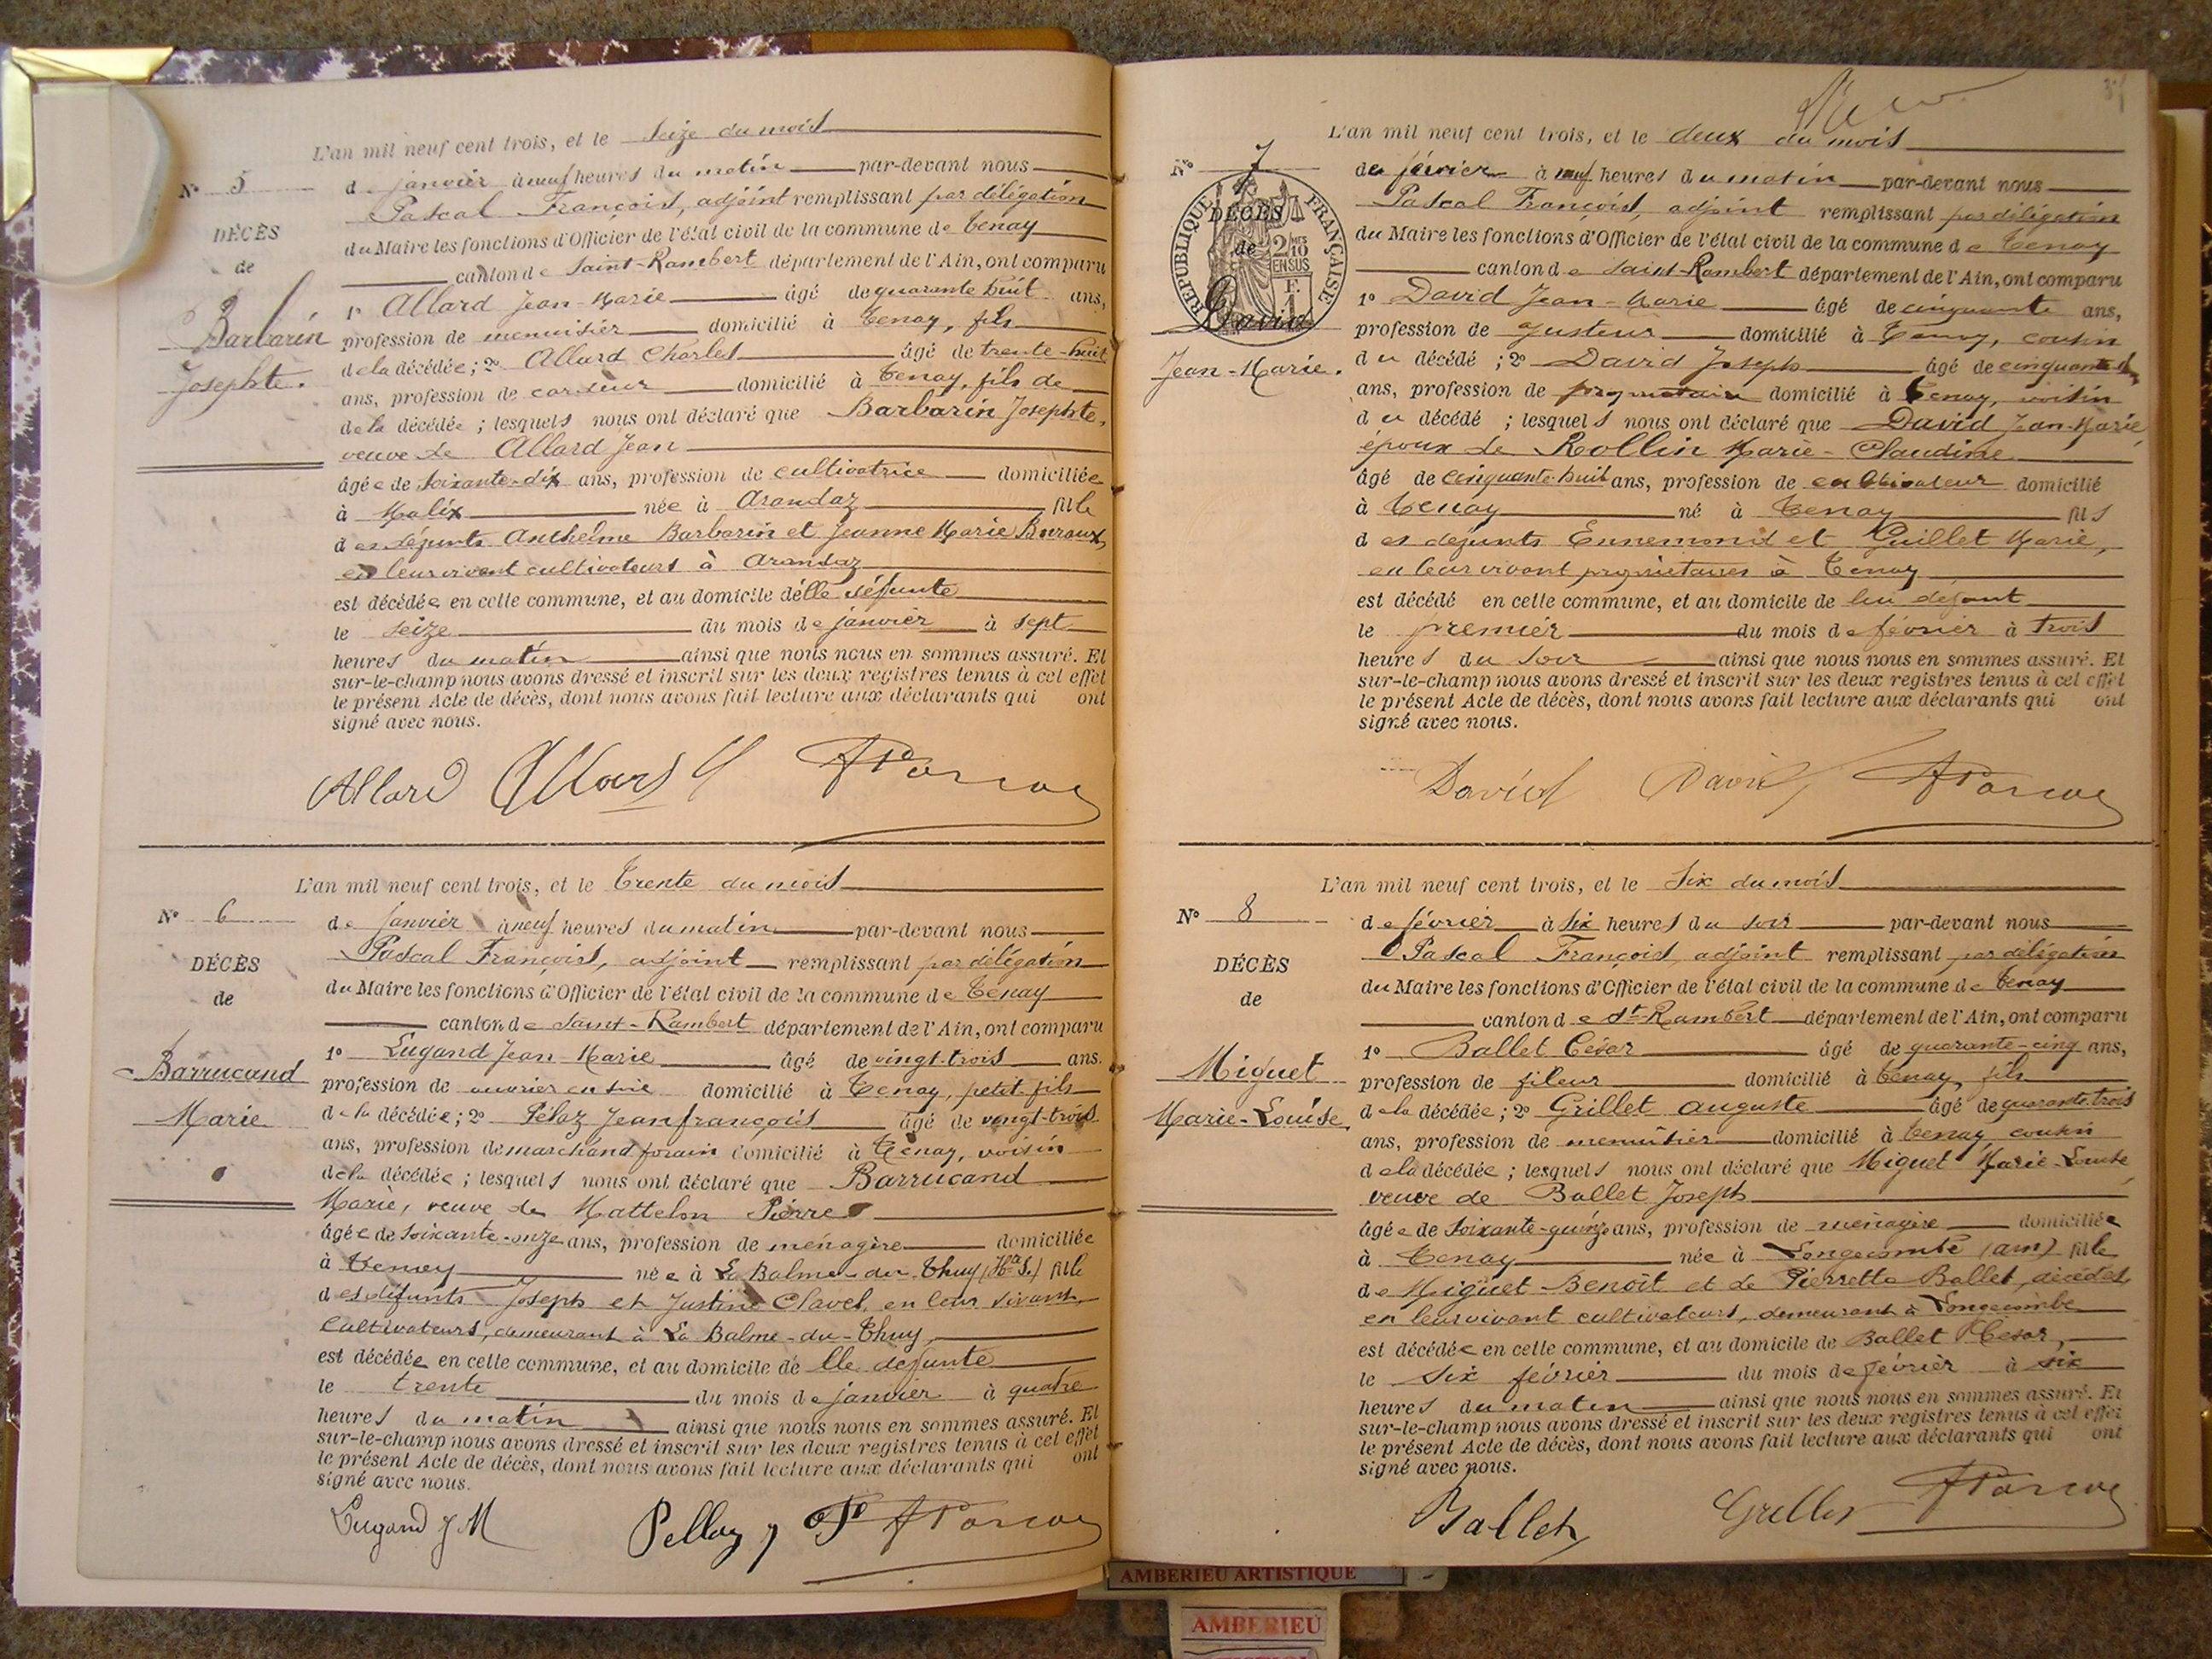 L'an mil neuf cent trois, et le seize du mois
N° 5
de janvier à neuf heures du matin par-devant nous
Pascal François, adjoint remplissant par délégation
DÉCÈS
du Maire les fonctions d'Officier de l'état civil de la commune de Tenay
de
canton de Saint-Rambert département de l'Ain, ont comparu
Barbarin
1° Allard Jean-Marie âgé de quarante huit ans,
profession de menuisier domicilié à Tenay, fils
Josephte.
de la décédée ; 2° Allard Charles âgé de trente-huit
ans, profession de cardeur domicilié à Tenay, fils de
de la décédée ; lesquels nous ont déclaré que Barbarin Josephte,
veuve de Allard Jean
âgée de soixante-dix ans, profession de cultivatrice domiciliée
à Malix née à Arandaz fille
des défunts Anthelme Barbarin et Jeanne Marie
en leur vivant cultivateurs à Arandaz
est décédée en cette commune, et au domicile d'elle défunte
le seize du mois de janvier à sept
heures du matin ainsi que nous nous en sommes assuré. Et
sur-le-champ nous avons dressé et inscrit sur les deux registres tenus à cet effet
le présent Acte de décès, dont nous avons fait lecture aux déclarants qui ont
signé avec nous.
Allard Allard APascal
L'an mil neuf cent trois, et le trente du mois
N° 6
de janvier à neuf heures du matin par-devant nous
Pascal François, adjoint remplissant par délégation
DÉCÈS
du Maire les fonctions d'Officier de l'état civil de la commune de Tenay
de
canton de Saint-Rambert département de l'Ain, ont comparu
1° Lugand Jean-Marie âgé de vingt-trois ans.
Barrucand
profession de ouvrier en soie domicilié à Tenay, petit-fils
Marie
de la décédée ; 2° Pélaz Jean françois âgé de vingt-trois
ans, profession de marchand forain domicilié à Tenay, voisin
de la décédée ; lesquels nous ont déclaré que Barrucand
Marie, veuve de Mattelon Pierre
âgée de soixante-onze ans, profession de ménagère domiciliée
à Tenay née à La Balme-du-Thuy (Hte S.) fille
des défunts Joseph et Justine Clavel, en leur vivant
cultivateurs, demeurant à La Balme-du-Thuy,
est décédée en cette commune, et au domicile de elle défunte
le trente du mois de janvier à quatre
heures du matin ainsi que nous nous en sommes assuré. Et
sur-le-champ nous avons dressé et inscrit sur les deux registres tenus à cet effet
le présent Acte de décès, dont nous avons fait lecture aux déclarants qui ont
signé avec nous.
Lugand J M Pellaz J F APascal
L'an mil neuf cent trois, et le deux du mois
N° 7
de février à neuf heures du matin par-devant nous
Pascal François, adjoint remplissant par délégation
DÉCÈS
du Maire les fonctions d'Officier de l'état civil de la commune de Tenay
de
RÉPUBLIQUE FRANÇAISE
2/10 EN SUS
F. 1
canton de Saint-Rambert département de l'Ain, ont comparu
David
1° David Jean-Marie âgé de cinquante ans,
profession de ajusteur domicilié à Tenay, cousin
Jean-Marie.
du décédé ; 2° David Joseph âgé de cinquante
ans, profession de propriétaire domicilié à Tenay, voisin
du décédé ; lesquels nous ont déclaré que David Jean-Marie,
époux de Rollin Marie-Claudine
âgé de cinquante-huit ans, profession de cultivateur domicilié
à Tenay né à Tenay fils
des défunts Ennemond et Guillet Marie,
en leur vivant propriétaires à Tenay
est décédé en cette commune, et au domicile de lui défunt
le premier du mois de février à trois
heures du soir ainsi que nous nous en sommes assuré. Et
sur-le-champ nous avons dressé et inscrit sur les deux registres tenus à cet effet
le présent Acte de décès, dont nous avons fait lecture aux déclarants qui ont
signé avec nous.
David David APascal
L'an mil neuf cent trois, et le six du mois
N° 8
de février à six heures du soir par-devant nous
Pascal François, adjoint remplissant par délégation
DÉCÈS
du Maire les fonctions d'Officier de l'état civil de la commune de Tenay
de
canton de St-Rambert département de l'Ain, ont comparu
1° Ballet César âgé de quarante-cinq ans,
Miguet
profession de fileur domicilié à Tenay, fils
Marie-Louise
de la décédée ; 2° Grillet Auguste âgé de quarante-trois
ans, profession de menuisier domicilié à Tenay cousin
de la décédée ; lesquels nous ont déclaré que Miguet Marie-Louise,
veuve de Ballet Joseph
âgée de soixante-quinze ans, profession de ménagère domiciliée
à Tenay née à Longecombe (ain) fille
de Miguet Benoît et de Pierrette Ballet, décédés,
en leur vivant cultivateurs, demeurant à Longecombe
est décédée en cette commune, et au domicile de Ballet César,
le six février du mois de février à six
heures du matin ainsi que nous nous en sommes assuré. Et
sur-le-champ nous avons dressé et inscrit sur les deux registres tenus à cet effet
le présent Acte de décès, dont nous avons fait lecture aux déclarants qui ont
signé avec nous.
Ballet Grillet APascal
AMBERIEU ARTISTIQUE
AMBERIEU